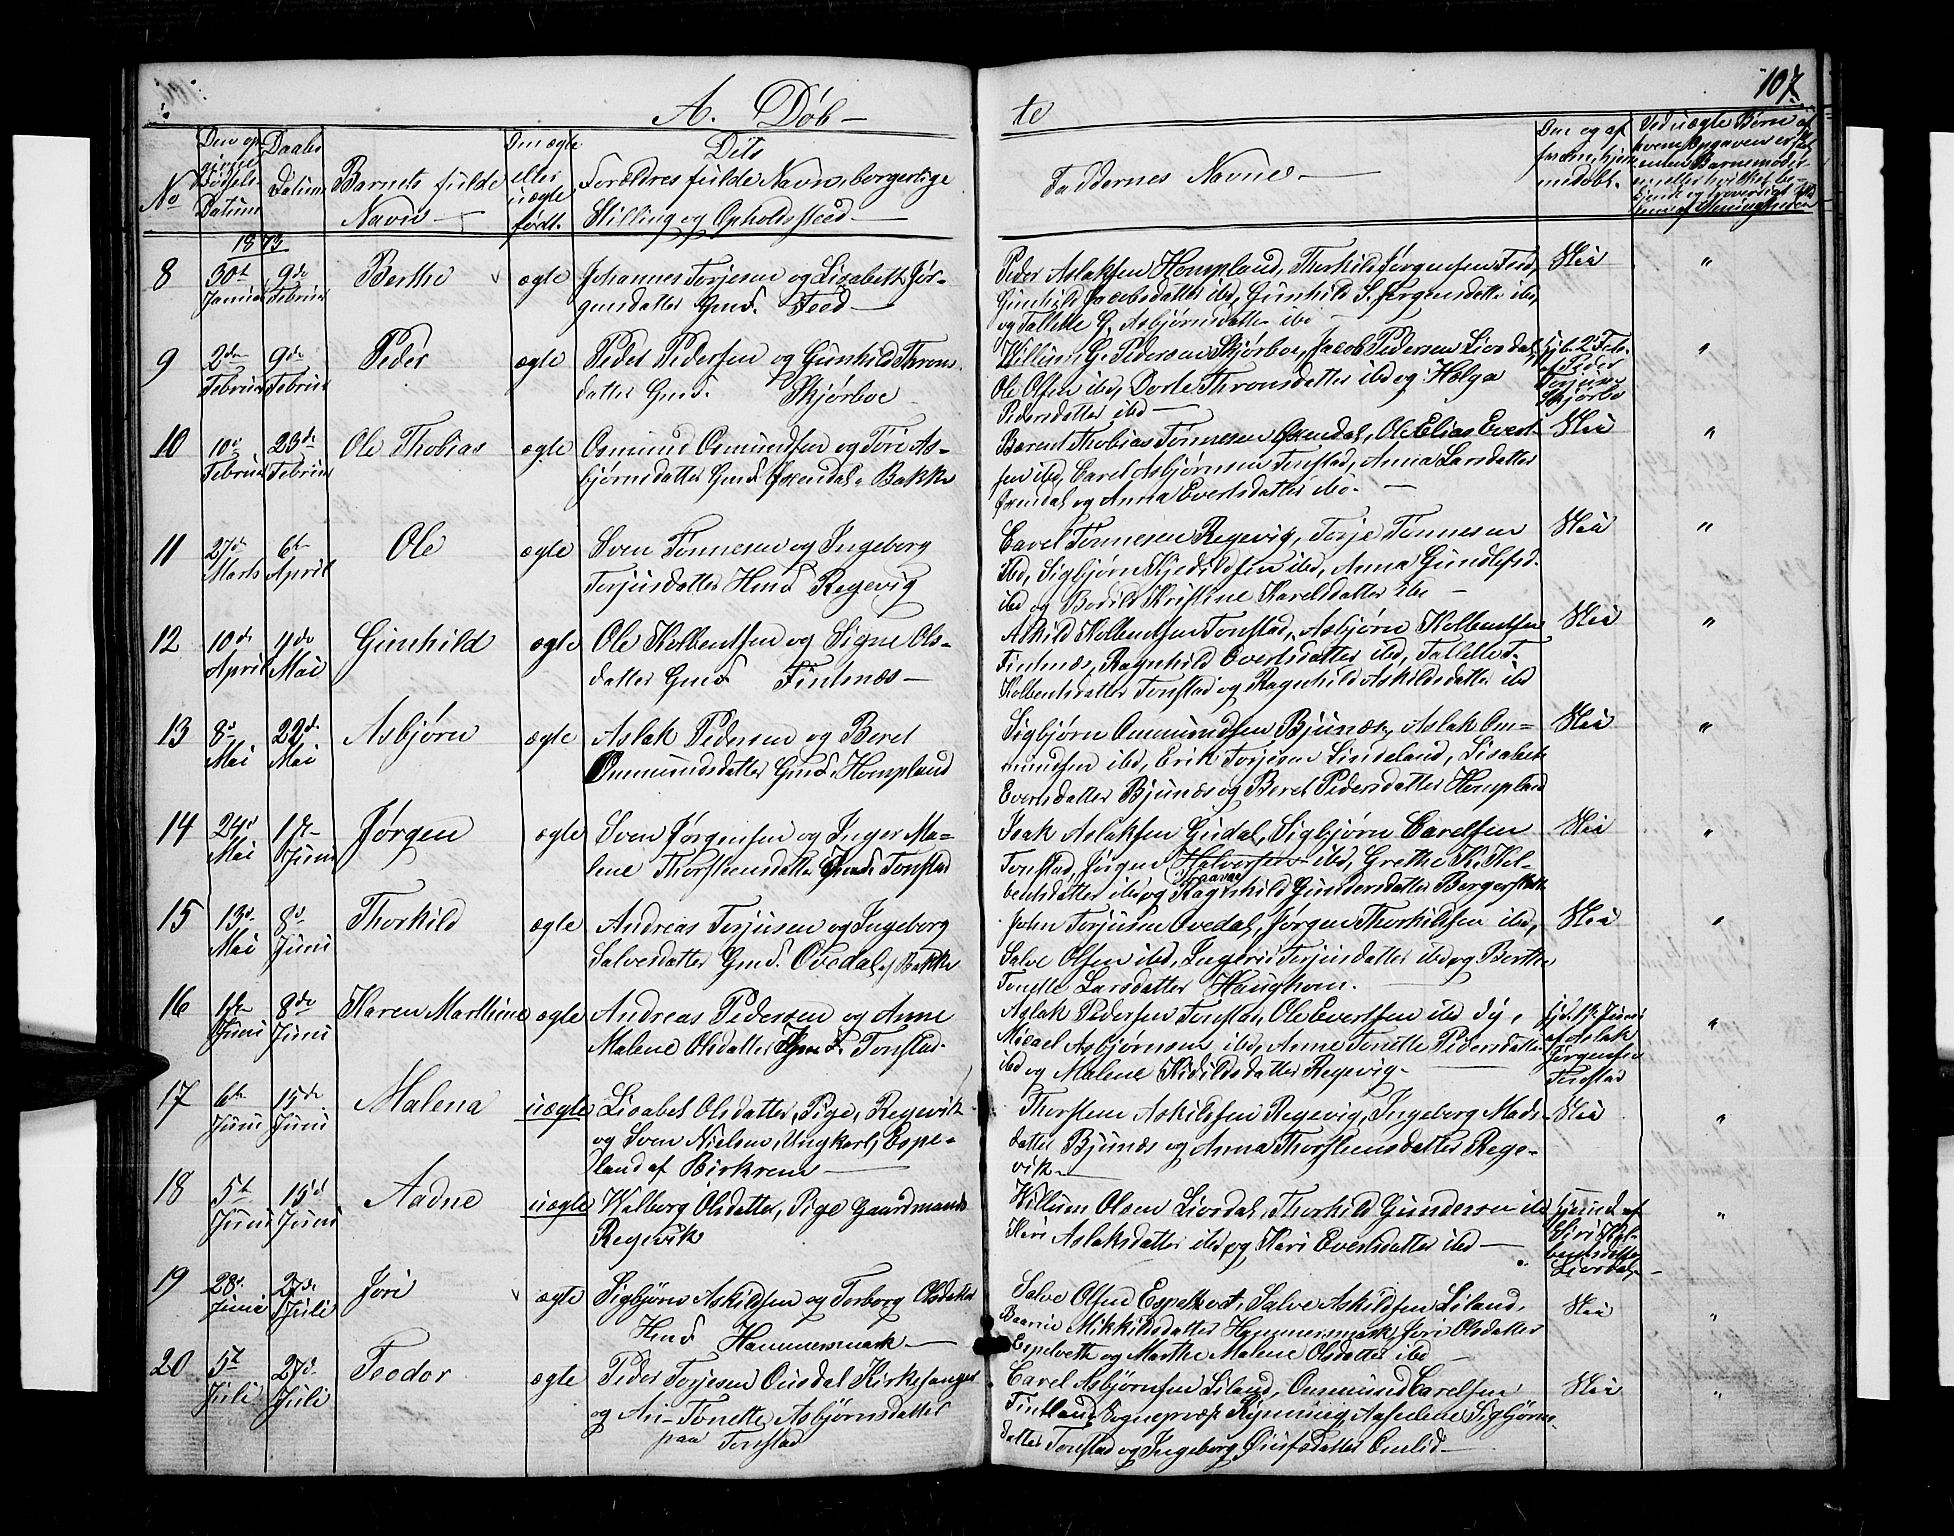 A. Døb-
te
107
No
Den op
givne
Fødsels-
Datum
Daabs
Datum
Barnets fulde
Navn
Om ægte
eller
uægte
født.
Dets
Forældres fulde Navn, borgerlige
Stilling og Opholdssted
Faddernes Navne
1873
8
30te Januar
9de Februar
Berthe
ægte
Johannes Torjesen og Lisabeth Jør-
gensdatter Gmd. Feed
Peder Aslaksen Hompland, Thorkild Jørgensen Feed,
Gunhild Jacobsdatter ibd, Gunhild S. Jørgensdatter ibd,
og Tallette G. Asbjørnsdatter ibd
Nei
"
9
2den Februar
9de Februar
Peder
ægte
Peder Pedersen og Gunhild Throns
datter Gmd. Skjørboe
Villum G. Pedersen Skjørboe, Jacob Pedersen Liordal,
Ole Olsen ibd, Dorte Thronsdatter ibd og Helga
Pedersdatter ibd
hj. d. 2 Feb.
af Peder
Torjusen
Skjørbo
"
10
10de Februar
23de Februar
Ole Thobias
ægte
Osmund Osmundsen og Tori As-
bjørnsdatter Gmd Øxendal, Bakke
Berent Thobias Tønnesen Øxendal, Ole Elias Evert-
sen ibd, Carel Asbjørnsen Tonstad, Anna Larsdatter
Øxendal og Anna Evertsdatter ibd.
Nei
"
11
27de Marts
6te April
Ole
ægte
Sven Tønnesen og Ingeborg
Terjusdatter Hmd Regevig
Carel Tønnesen Regevig, Torje Tønnesen
ibd, Sigbjørn Kjedilsen ibd, Anna Gundlefsd.
ibd og Bodil Kristine Karelsdatter ibd
Nei
"
12
10de April
11de Mai
Gunhild
ægte
Ole Kolbentsen og Signe Ols-
datter Gmd Fintnæs
Askild Kolbentsen Tonstad, Asbjørn Kolbentsen
Fintnæs, Ragnhild Evertsdatter ibd, Tallette T.
Kolbentsdatter Tonstad og Ragnhild Askildsdatter ibd
Nei
"
13
8de Mai
22de Mai
Asbjørn
ægte
Aslak Pedersen og Beret
Ommundsdatter Gmd. Hompland
Sigbjørn Ommundsen Bjunæs, Aslak Om-
mundsen ibd, Erik Torjesen Lindeland, Lisabet
Evertsdatter Bjunæs og Beret Pedersdatter Hompland
Nei
"
14
24de Mai
1ste Juni
Jørgen
ægte
Sven Jørgensen og Inger Ma-
lene Thorsteensdatter Gmd. Tonstad
Isak Aslaksen Gudal, Sigbjørn Carelsen
Tonstad, Jørgen Halvorsen ibd, Grethe K. Kol-
bentsdatter ibd og Ragnhild Gundersdatter
Nei
"
15
13de Mai
8de Juni
Thorkild
ægte
Andreas Terjusen og Ingeborg
Salvesdatter Gmd. Ovedal af Bakke
John Torjusen Ovedal, Jørgen Thorkildsen ibd,
Salve Olsen ibd, Ingerid Terjusdatter ibd og Berthe
Tonette Larsdatter Haughom.
Nei
"
16
1ste Juni
8de Juni
Karen Marthine
ægte
Andreas Pedersen og Anne
Malene Olsdatter Gmd. Tonstad.
Aslak Pedersen Tonstad, Ole Evertsen ibd,
Micael Asbjørnsen ibd, Anne Tonette Pedersdatter
ibd og Malene Kidildsdatter Regevig.
hj. d. 1ste Juni
af Aslak
Jørgensen
Tonstad
"
17
6te Juni
15de Juni
Malena
uægte
Lisabet Olsdatter, Pige, Regevik
og Sven Nielsen, Ungkarl, Espe-
land af Birkrem
Thorsten Askildsen Regevig, Ingeborg Mads-
datter Bjunæs og Anna Thorsteensdatter Rege-
vik
Nei
"
18
5te Juni
15de Juni
Aadne
uægte
Walborg Olsdatter, Pige Gaardmands
Regevik
Willum Olsen Liordal, Thorkild Gundersen ibd
Kari Aslaksdatter ibd og Kari Evertsdatter ibd
hjemmed. af
Siri Kol-
bentsdatter
Liordal
"
19
28de Juni
27de Juli
Jori
ægte
Sigbjørn Askildsen og Torborg Olsdatter
Hmd Hammersmark
Salve Olsen Espetvet, Salve Askildsen Liland,
Mikkildsdatter Hammersmark, Jori Olsdatter
Espetveth og Marthe Malene Olsdatter ibd
Nei
"
20
5te Juli
27de Juli
Teodor
ægte
Peder Torjesen Ousdal Kirkesanger
og An- Tonette Asbjørnsdatter
paa Tonstad
Carel Asbjørnsen Liland, Ommund Carelsen
Fintland, Sognepræst Rynning, Sigbjørns-
datter Tonstad og Ingeborg Omlid
Nei
"